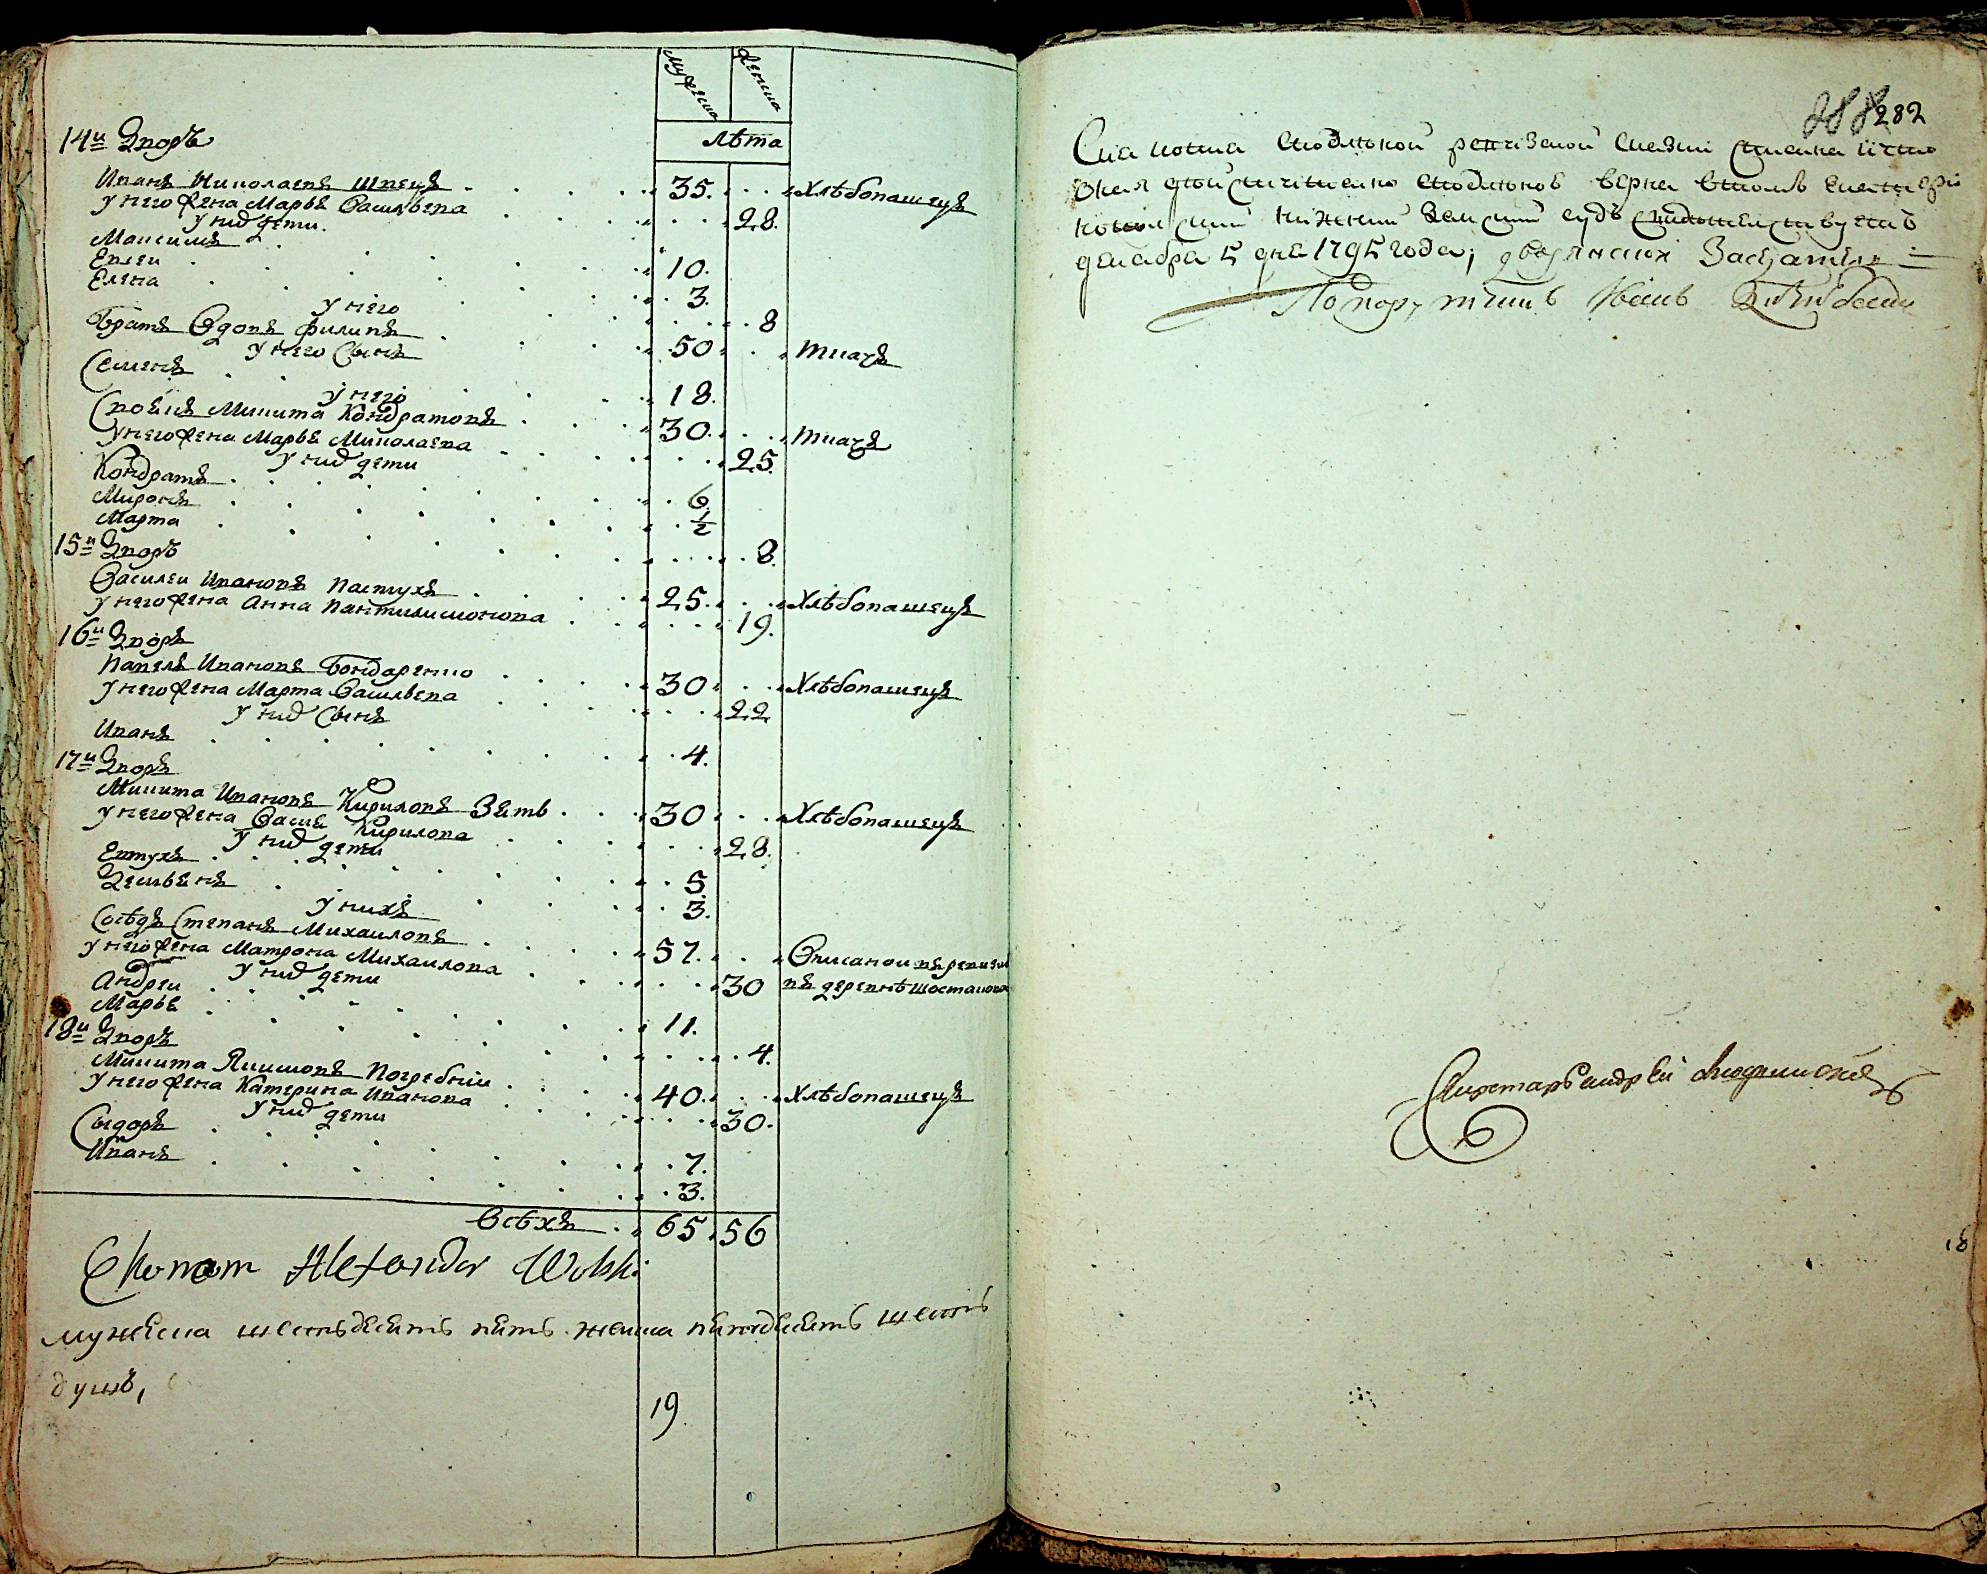 мужеска
женска
лѣта
14й Дворъ
Иванъ Николаевъ Швецъ 35. Хлѣбопашецъ
у него жена Марья Васильева 28.
у них дети.
Максимъ 10.
Евсеи 3.
Елена 8
у него
Братъ Вдовъ Филипъ 50 ткачъ
у него Сынъ
Семенъ 18.
у него
Своякъ Микита Кондратовъ 30. ткачъ
у него жена Марья Миколаева 25.
у них дети
Кондратъ 6.
Миронъ ½
Марта 8.
15й Дворъ
Василеи Ивановъ Пастухъ 25. Хлѣбопашецъ
у него жена Анна Пантилимонова 19.
16й Дворъ
Павелъ Ивановъ Бондаренко 30 Хлѣбопашецъ
у него жена Марта Васильева 22
у них Сынъ
Иванъ 4.
17й Дворъ
Микита Ивановъ Кириловъ Зять 30 Хлѣбопашецъ
у него жена Васса Кирилова 28.
у них дети
Евтухъ 5.
Демьянъ 3.
у нихъ
Сосѣдъ Степанъ Михаиловъ 57. Описанои въ ревизи
у него жена Матрона Михаилова 30 въ деревнѣ Шостаковка
у них дети
Андреи 11.
Марья 4.
18й Дворъ
Микита Якимовъ Погребнои 40. Хлѣбопашецъ
у него жена Катерина Иванова 30.
у них дети
Сыдоръ 7.
Иванъ 3.
Всѣхъ 65 56
Ekonom Alexander Wolski
мужеска шестьдесятъ пять женска пятьдесятъ шесть
душъ,
19
288 282
Сиа копиа сподлѣнной ревизской сказки списана и что
оная точная сподлинной верна в томъ екатери
нопольский нижний земский судъ свидетельствуетъ
декабря 5 дня 1795 года; дворянской Заседатель
Порутчикъ Иванъ
Секретарь Андрей